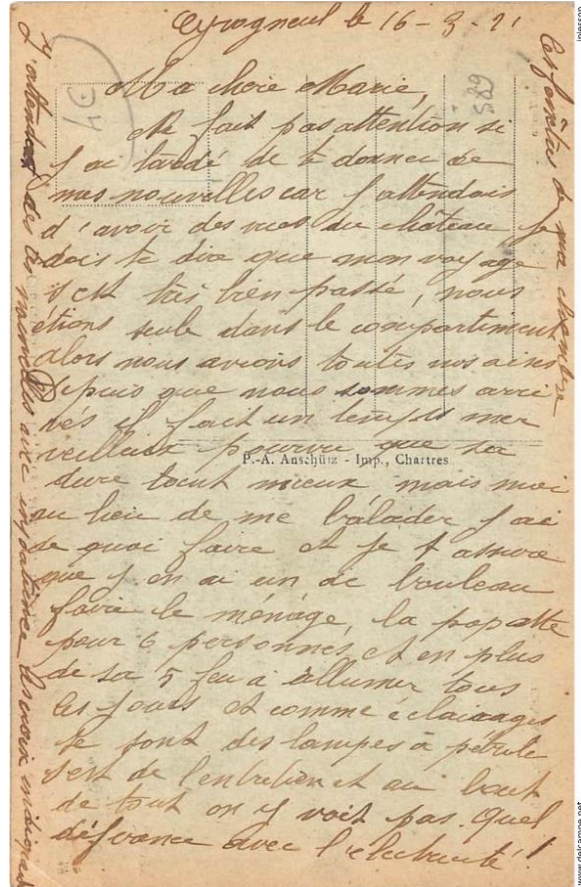 le 16-3-21
Ma chère Marie,
Ne fait pas attention si
j'ai tardé de te donner de
mes nouvelles car j'attendais
d'avoir des vues du château je
dois te dire que mon voyage
s'est très bien passé, nous
étions seule dans le compartiment
alors nous avions toutes nos aises
Depuis que nous sommes arri
vés il fait un temps mer
veilleux pourvu que sa
dure tout mieux mais moi
au lieu de me balader j'ai
de quoi faire et je t'assure
que j'en ai un de bouleau
faire le ménage, la popotte
pour 6 personnes, et en plus
de sa 5 feu a allumer tous
les jours et comme éclairages
se sont des lampes à pétrole
sert de l'entretien et au bout
de tout on y voit pas. Quel
différence avec l'électricité!
P.-A. Anschütz - Imp., Chartres
J'attends de tes nouvelles avec impatience
Les fenêtres de ma chambre
4€
589
www.delcampe.net